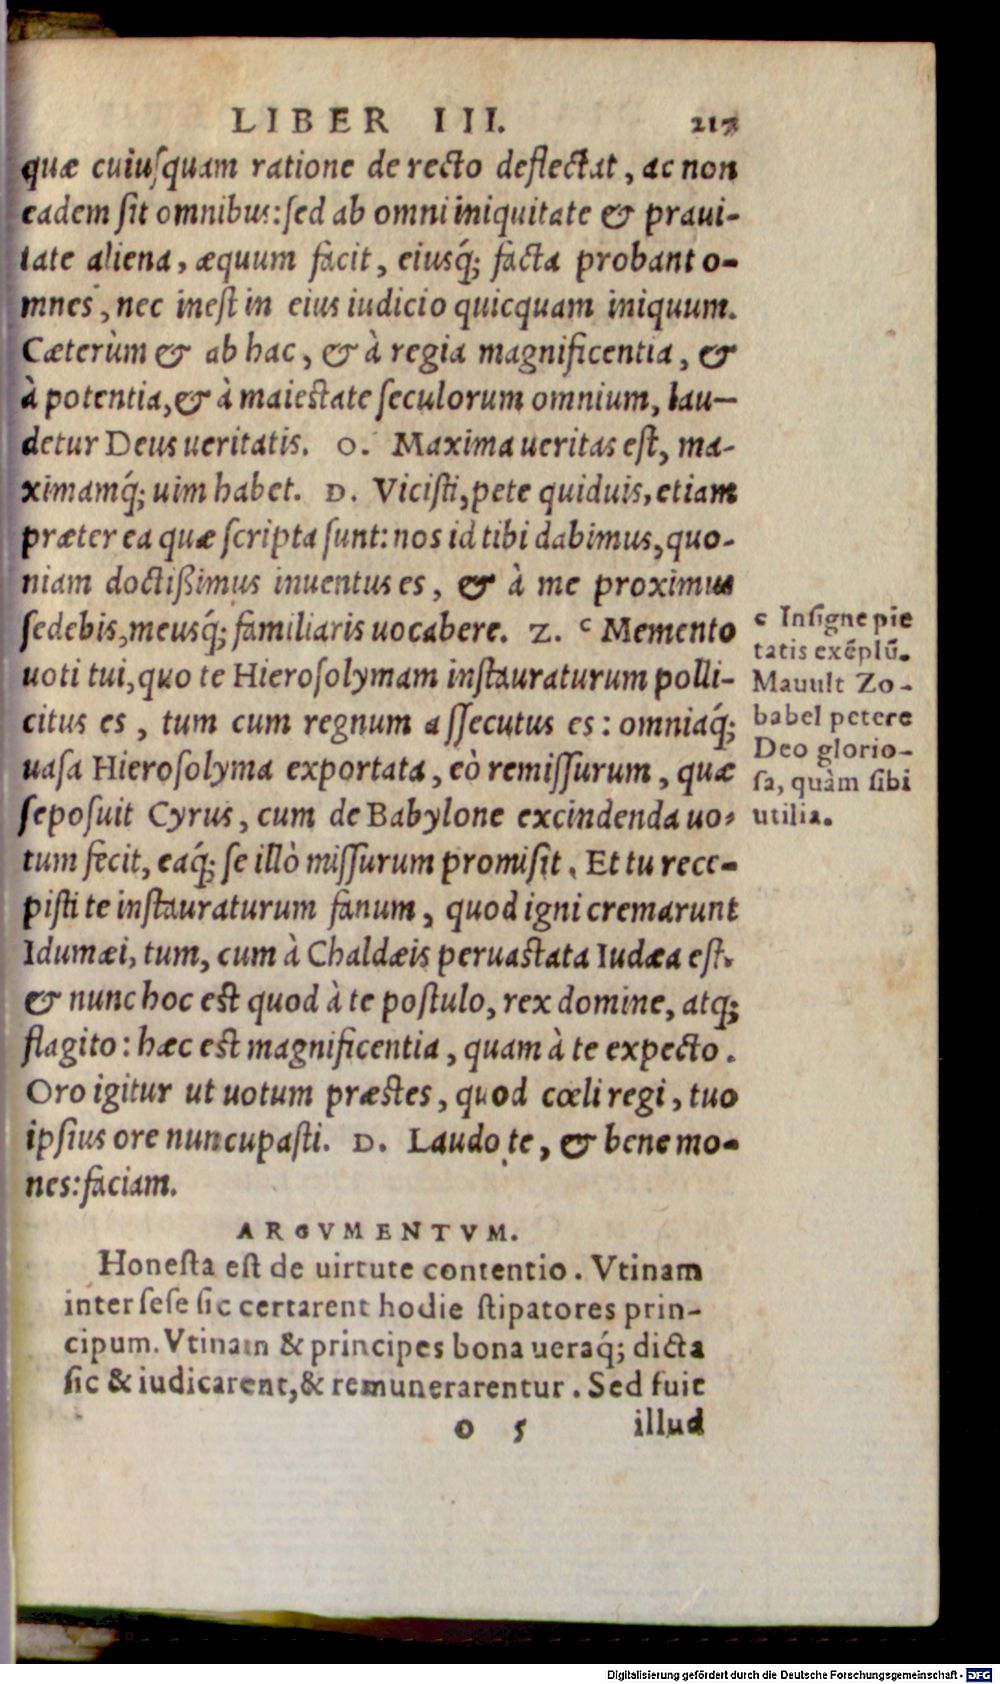 LIBER III. 217
quæ cuiuſquam ratione de recto deflectat, ac non
eadem ſit omnibus: ſed ab omni iniquitate & praui-
tate aliena, æquum facit, eiusq́; facta probant o-
mnes, nec ineſt in eius iudicio quicquam iniquum.
Cæterùm & ab hac, & à regia magnificentia, &
à potentia, & à maieſtate ſeculorum omnium, lau-
detur Deus ueritatis. O. Maxima ueritas eſt, ma-
ximamq́; uim habet. D. Viciſti, pete quiduis, etiam
præter ea quæ ſcripta ſunt: nos id tibi dabimus, quo-
niam doctißimus inuentus es, & à me proximus
ſedebis, meusq́; familiaris uocabere. Z. ᶜ Memento
uoti tui, quo te Hieroſolymam inſtauraturum polli-
citus es, tum cum regnum aſſecutus es: omniaq́;
uaſa Hieroſolyma exportata, eò remiſſurum, quæ
ſepoſuit Cyrus, cum de Babylone excindenda uo-
tum fecit, eaq́; ſe illò miſſurum promiſit. Et tu rece-
piſti te inſtauraturum fanum, quod igni cremarunt
Idumæi, tum, cum à Chaldæis peruaſtata Iudæa eſt.
& nunc hoc eſt quod à te poſtulo, rex domine, atq;
flagito: hæc eſt magnificentia, quam à te expecto.
Oro igitur ut uotum præſtes, quod cœli regi, tuo
ipſius ore nuncupaſti. D. Laudo te, & bene mo-
nes: faciam.
c Inſigne pie
tatis exẽplũ.
Mauult Zo-
babel petere
Deo glorio-
ſa, quàm ſibi
utilia.
ARGVMENTVM.
Honeſta eſt de uirtute contentio. Vtinam
inter ſeſe ſic certarent hodie ſtipatores prin-
cipum. Vtinam & principes bona ueraq́; dicta
ſic & iudicarent, & remunerarentur. Sed fuit
o 5 illud
Digitalisierung gefördert durch die Deutsche Forschungsgemeinschaft - DFG